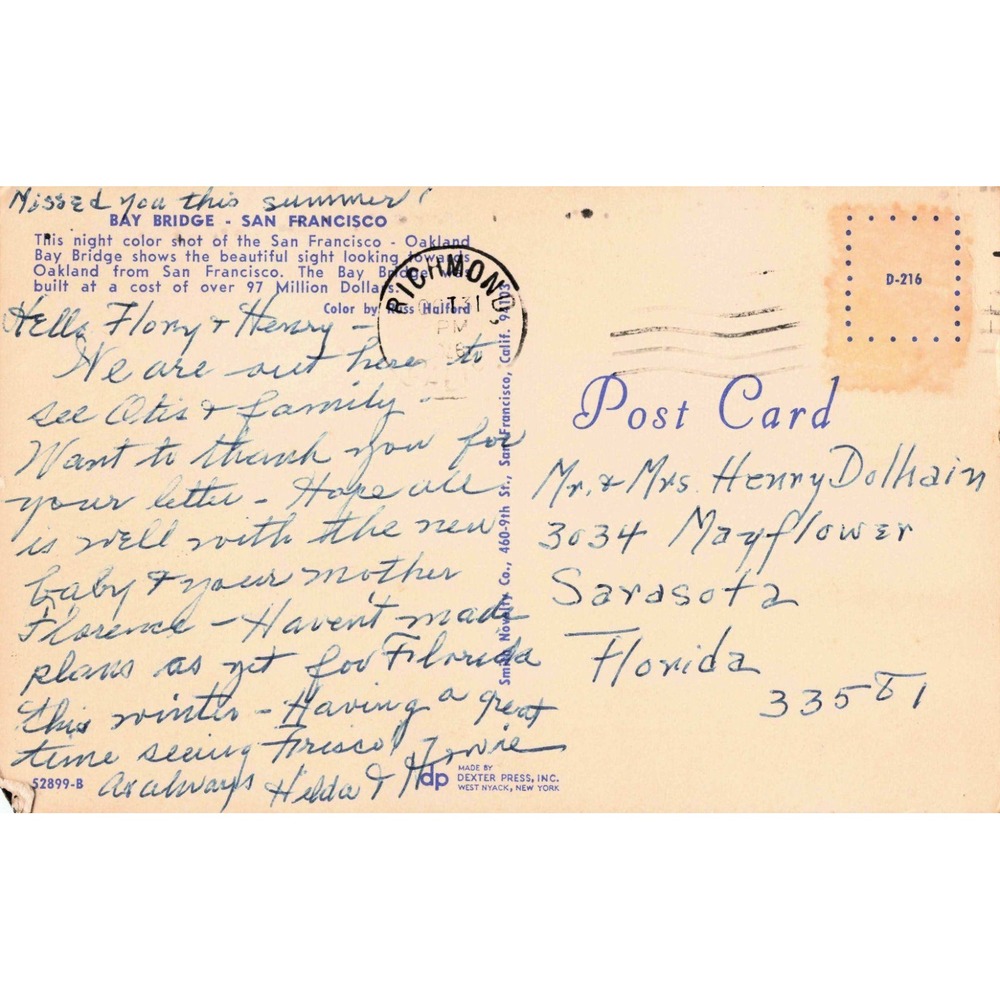 Missed you this summer!
BAY BRIDGE - SAN FRANCISCO
This night color shot of the San Francisco - Oakland
Bay Bridge shows the beautiful sight looking towards
Oakland from San Francisco. The Bay Bridge was
built at a cost of over 97 Million Dollars.
Color by Russ Halford
Hello Flory & Henry -
We are out here to
see Otis & family -
Want to thank you for
your letter - Hope all
is well with the new
baby & your mother
Florence - Haven't made
plans as yet for Florida
this winter - Having a great
time seeing Frisco!
As always Hilda &
52899-B
RICHMOND,
OCT 31
PM
Smith Novelty Co., 460-9th St., San Francisco, Calif. 94103
dp
MADE BY
DEXTER PRESS, INC.
WEST NYACK, NEW YORK
D-216
Post Card
Mr. & Mrs. Henry Dolhain
3034 Mayflower
Sarasota
Florida
33581